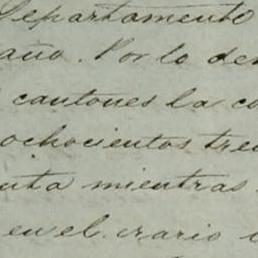 Departamento
año. Por lo de
cantones la co
ochocientos tre
nta mientras
en el erario